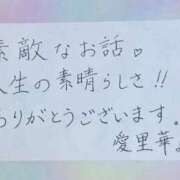 素敵なお話♡
人生の素晴らしさ!!
ありがとうございます。
愛里華